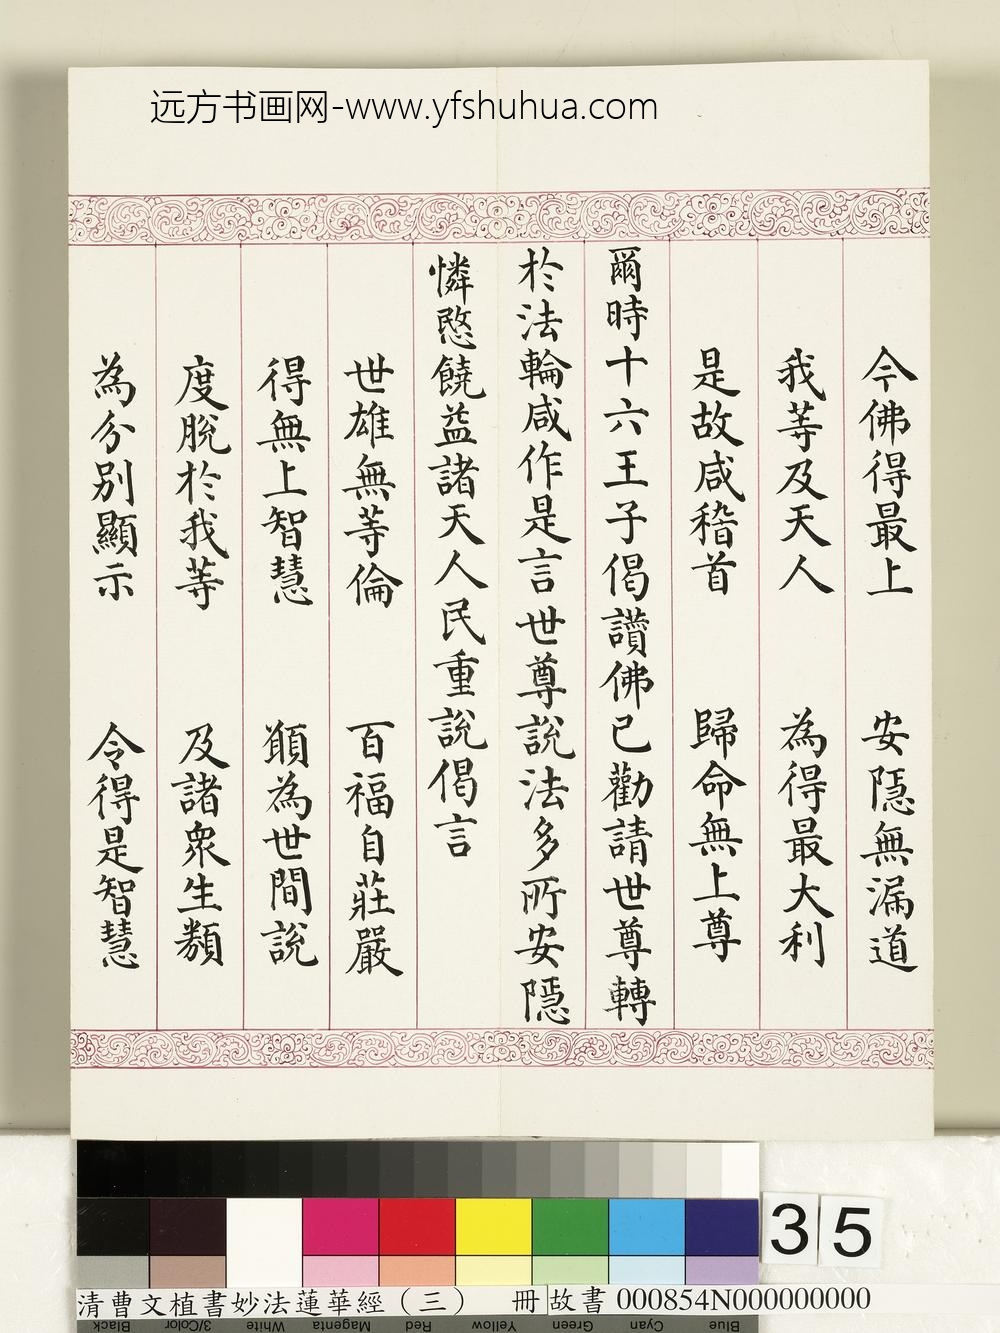 远方书画网-www.yfshuhua.com
今佛得最上　安隱無漏道
我等及天人　為得最大利
是故咸稽首　歸命無上尊
爾時十六王子偈讚佛已勸請世尊轉
於法輪咸作是言世尊說法多所安隱
憐愍饒益諸天人民重說偈言
世雄無等倫　百福自莊嚴
得無上智慧　願為世間說
度脫於我等　及諸眾生類
為分別顯示　令得是智慧
35
清曹文植書妙法蓮華經（三）　冊　故書　000854N000000000
Black 3/Color White Magenta Red Yellow Green Cyan Blue